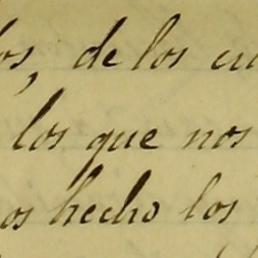 os, de los cu
los que nos
os hecho los